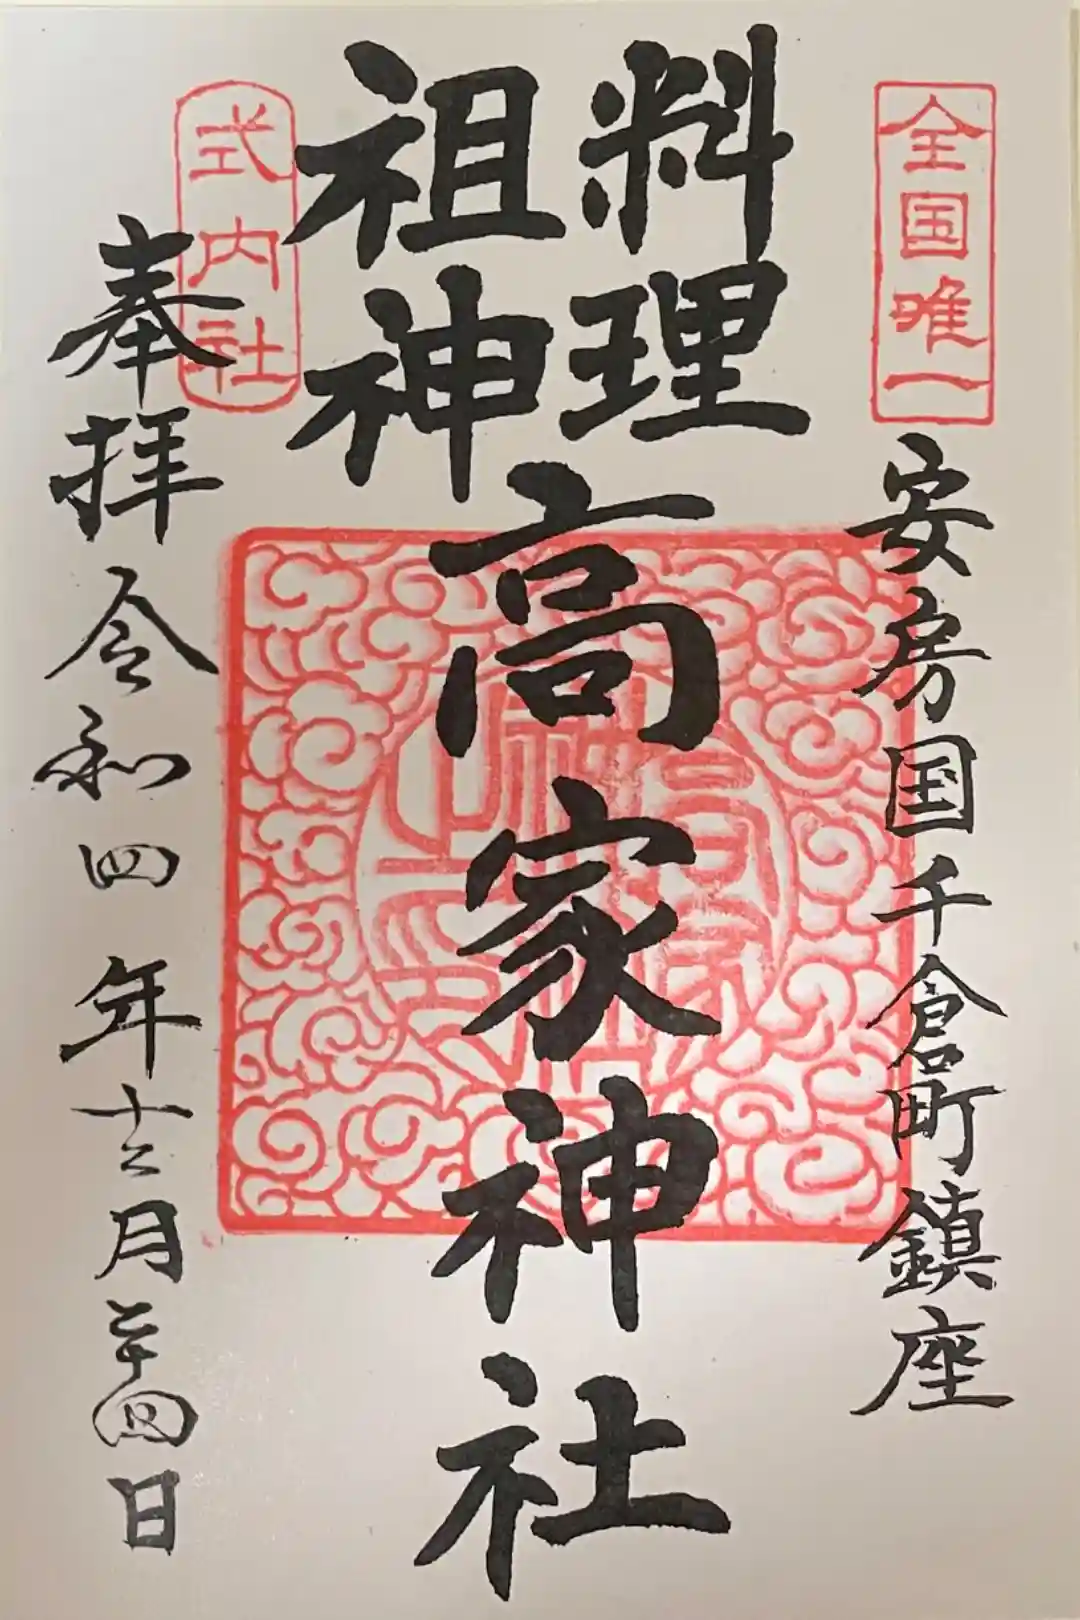 全国唯一
安房国千倉町鎮座
料理
祖神
高家神社
式内社
奉拝 令和四年十二月二十四日